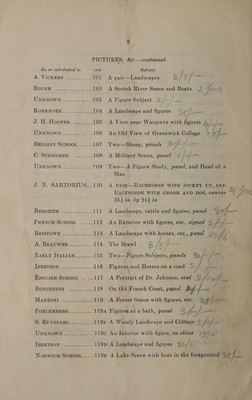 8
PICTURES, &c.—continued.
By or attributed to LOT Subject.
A. VICKERS 101 A pair—Landscapes
ROUGH 102 A Scotch River Scene and Boats
UNKNOWN 103 A Figure Subject
KOEKKOEK 104 A Landscape and figures
J. H. HOOPER 105 A View near Wargrave with figures
UNKNOWN 106 An Old View of Greenwich College
BELGIAN SCHOOL 107 Two—Sheep, panels
C. SCHERRER 108 A Military Scene, panel
UNKNOWN 109 Two—A Figure Study, panel, and Head of a
Man
J. N. SARTORIUS 110 A PAIR—RACEHORSE WITH JOCKEY UP, AND
RACEHORSE WITH GROOM AND DOG, canvas
35½ in. by 24½ in
BERGHEM 111 A Landscape, cattle and figures, panel
FRENCH SCHOOL 112 An Exterior with figures, etc., signed
BRISTOWE 113 A Landscape with horses, etc., panel
A. BRAUWER 114 The Brawl
EARLY ITALIAN 115 Two—Figure Subjects, panels
IBBETSON 116 Figures and Horses on a road
ENGLISH SCHOOL 117 A Portrait of Dr. Johnson, oval
BONINGTON 118 On the French Coast, panel
MANZONI 119 A Forest Scene with figures, etc.
POELEMBERG 119A Figures at a bath, panel
S. RUYSDAEL 119B A Woody Landscape and Cottage
UNKNOWN 119C An Interior with figure, on china
IBBETSON 119D A Landscape and figures
NORWICH SCHOOL 119E A Lake Scene with boat in the foreground